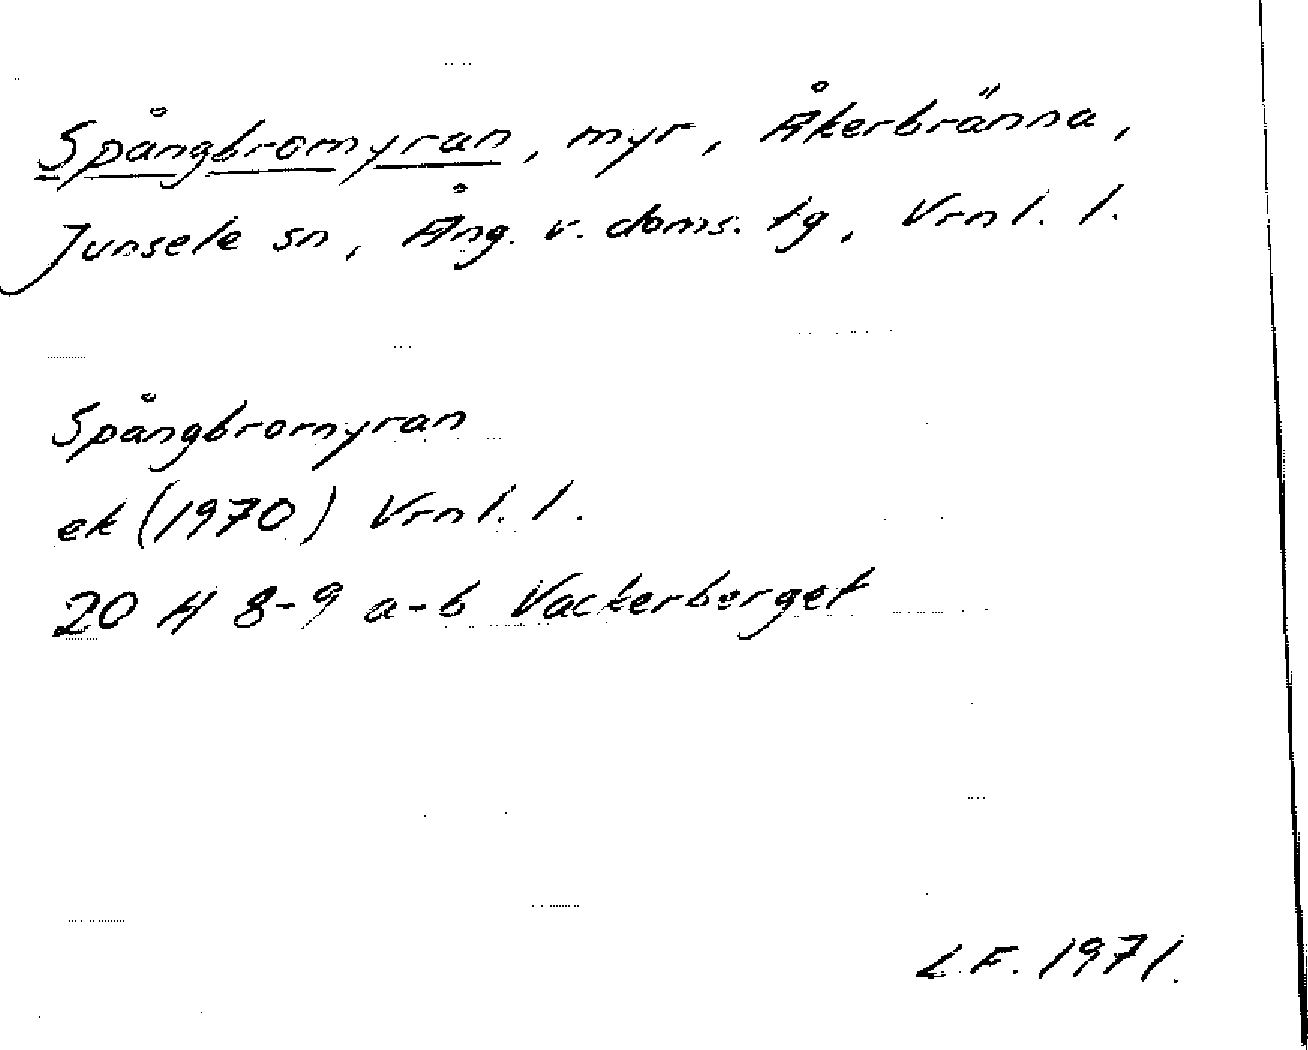 Spångbromyran, myr, Åkerbränna,
Junsele sn, Ång. v. doms. tg, Vrnl. l.
Spångbromyran
ek (1970) Vrnl. l.
20 H 8-9 a-b Vackerberget
L.F. 1971.